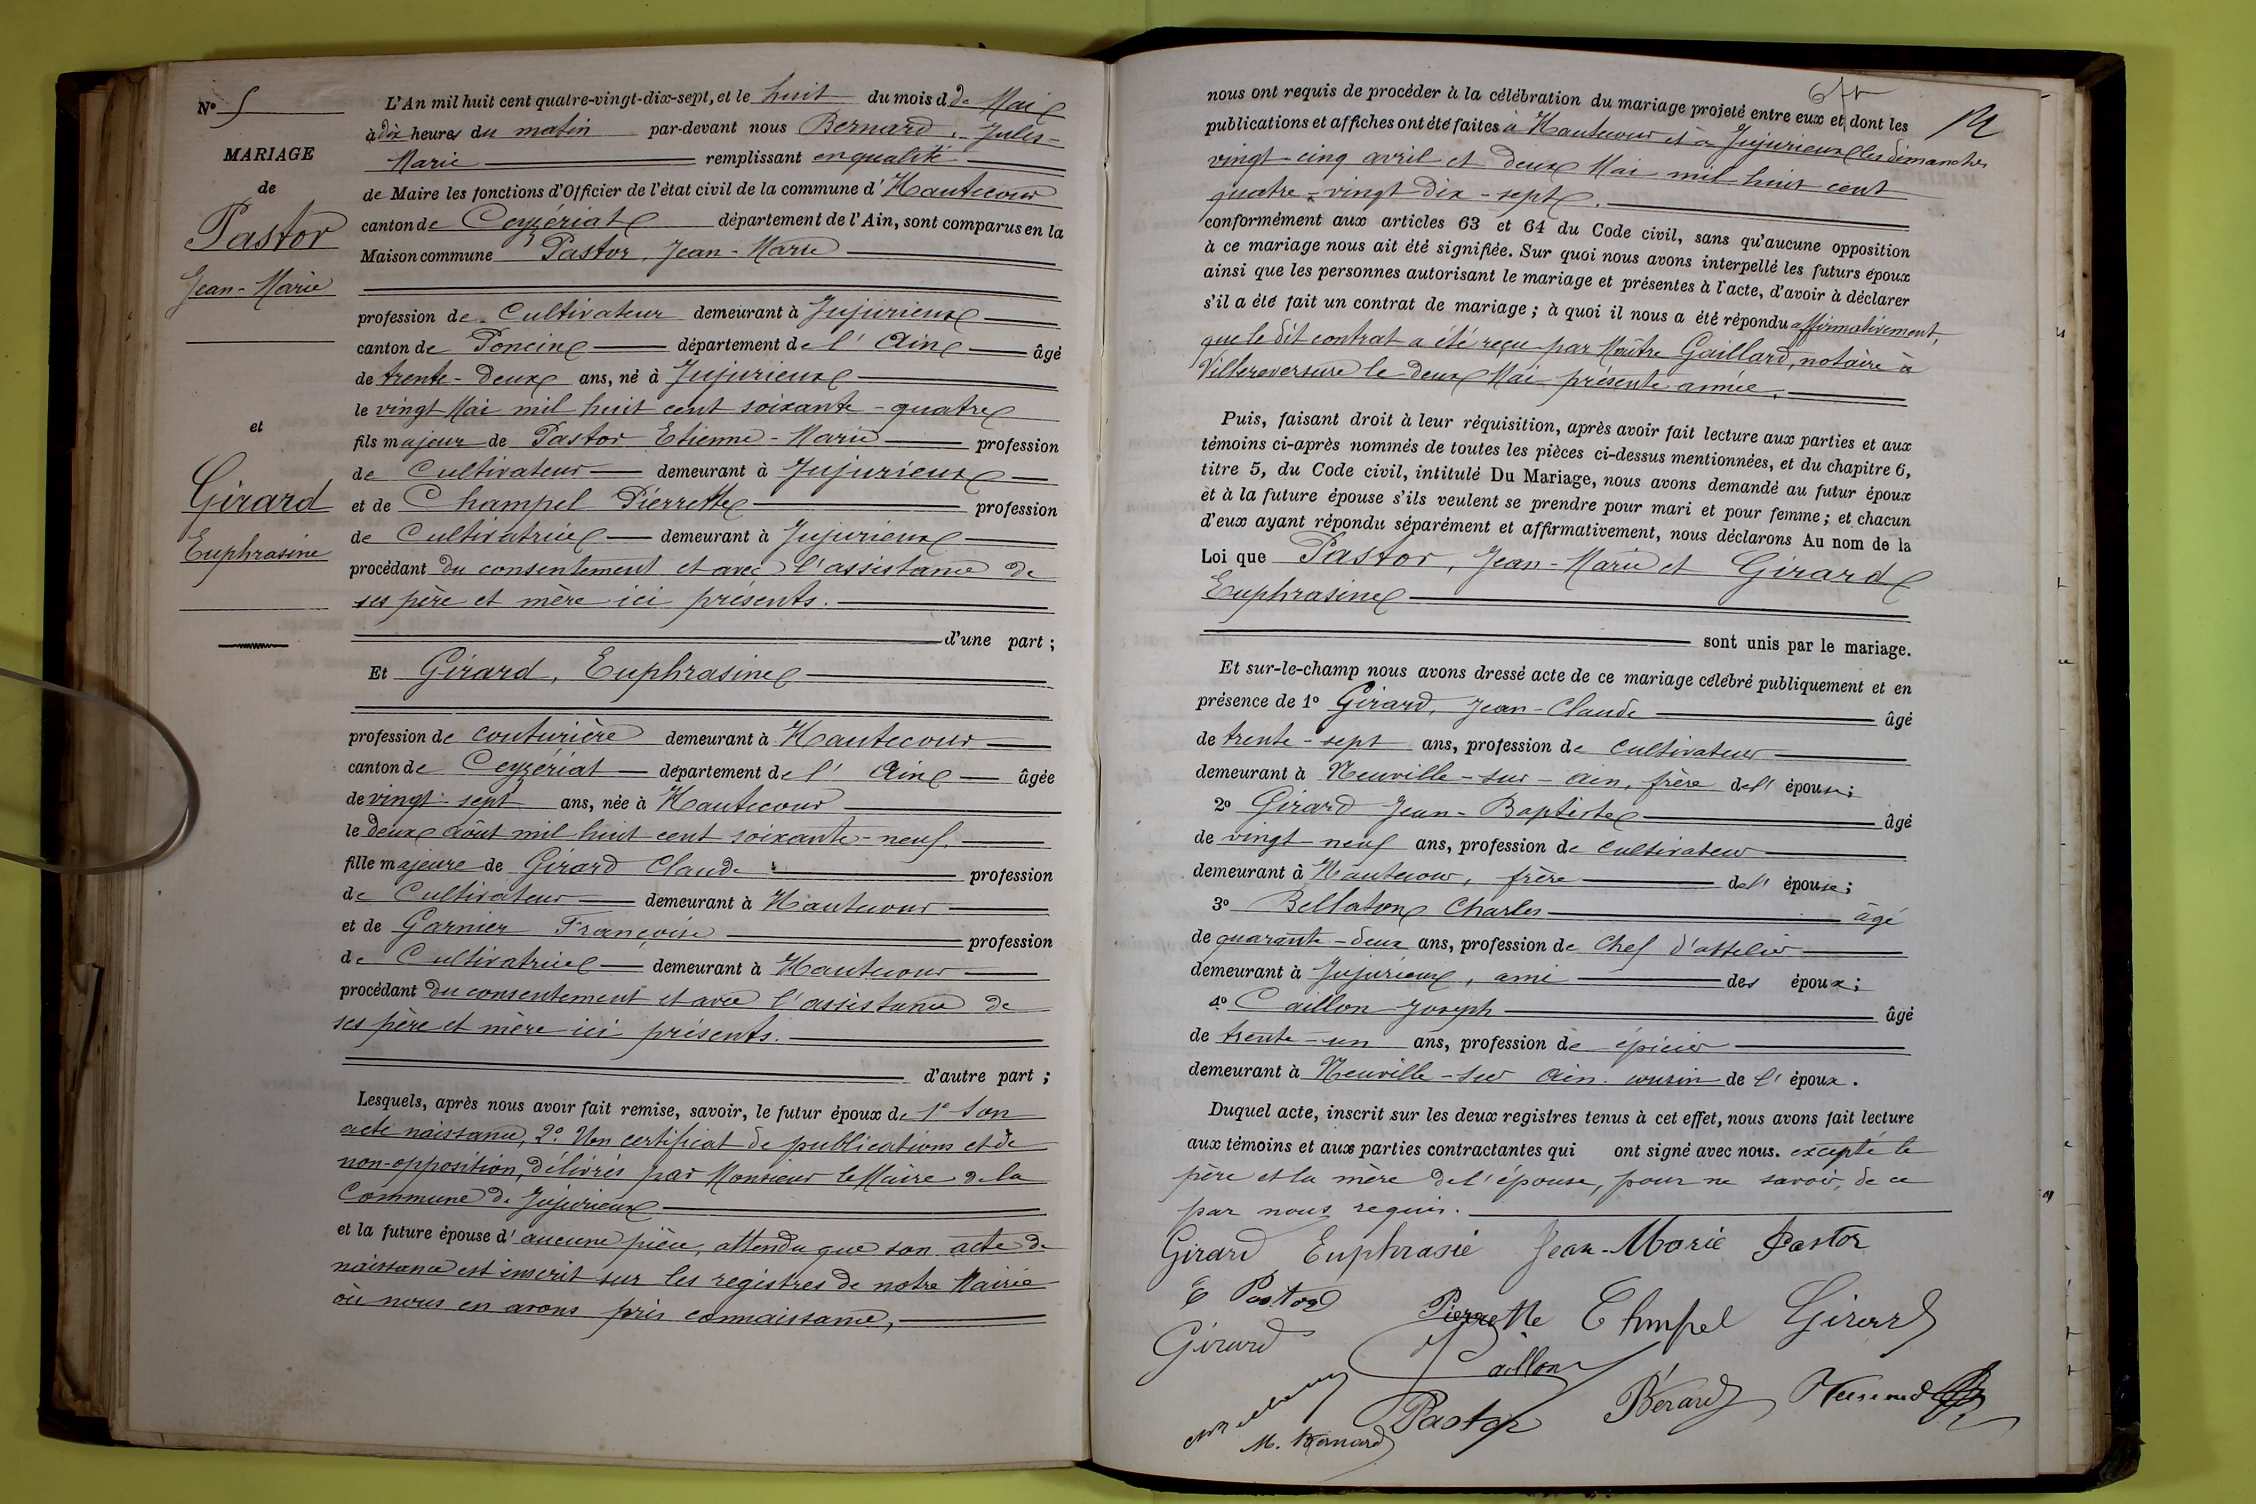 N° 5
MARIAGE
de
Pastor
Jean-Marie
et
Girard
Euphrasine
L'An mil huit cent quatre-vingt-dix-sept, et le huit du mois d de Mai
à dix heures du matin par-devant nous Bernard, Jules-
Marie remplissant en qualité
de Maire les fonctions d'Officier de l'état civil de la commune d' Hautecour
canton de Ceyzeriat département de l'Ain, sont comparus en la
Maison commune Pastor, Jean-Marie
profession de Cultivateur demeurant à Jujurieux
canton de Poncin département de l' Ain âgé
de trente-deux ans, né à Jujurieux
le vingt Mai mil huit cent soixante-quatre
fils majeur de Pastor Etienne-Marie profession
de Cultivateur demeurant à Jujurieux
et de Champel Pierrette profession
de Cultivatrice demeurant à Jujurieux
procédant du consentement et avec l'assistance de
ses père et mère ici présents.
d'une part ;
Et Girard, Euphrasine
profession de couturière demeurant à Hautecour
canton de Ceyzériat département de l' Ain âgée
de vingt-sept ans, née à Hautecour
le deux Août mil huit cent soixante-neuf.
fille majeure de Girard Claude profession
de Cultivateur demeurant à Hautecour
et de Garnier Françoise profession
de Cultivatrice demeurant à Hautecour
procédant du consentement et avec l'assistance de
ses père et mère ici présents.
d'autre part ;
Lesquels, après nous avoir fait remise, savoir, le futur époux de 1° Son
acte naissance, 2° Un certificat de publications et de
non-opposition, délivrés par Monsieur le Maire de la
Commune de Jujurieux
et la future épouse d' aucune pièce, attendu que son acte de
naissance est inscrit sur les registres de notre Mairie
où nous en avons pris connaissance,
nous ont requis de procéder à la célébration du mariage projeté entre eux et dont les
publications et affiches ont été faites à Hautecour et à Jujurieux les dimanches
vingt-cinq avril et deux Mai mil huit cent
quatre-vingt-dix-sept.
conformément aux articles 63 et 64 du Code civil, sans qu'aucune opposition
à ce mariage nous ait été signifiée. Sur quoi nous avons interpellé les futurs époux
ainsi que les personnes autorisant le mariage et présentes à l'acte, d'avoir à déclarer
s'il a été fait un contrat de mariage ; à quoi il nous a été répondu affirmativement,
que le dit contrat a été reçu par Maître Gaillard, notaire à
Villereversure le deux Mai présente année.
Puis, faisant droit à leur réquisition, après avoir fait lecture aux parties et aux
témoins ci-après nommés de toutes les pièces ci-dessus mentionnées, et du chapitre 6,
titre 5, du Code civil, intitulé Du Mariage, nous avons demandé au futur époux
et à la future épouse s'ils veulent se prendre pour mari et pour femme ; et chacun
d'eux ayant répondu séparément et affirmativement, nous déclarons Au nom de la
Loi que Pastor, Jean-Marie et Girard
Euphrasine
sont unis par le mariage.
Et sur-le-champ nous avons dressé acte de ce mariage célébré publiquement et en
présence de 1° Girard, Jean-Claude âgé
de trente-sept ans, profession de cultivateur
demeurant à Neuville-sur-Ain, frère de l' épouse ;
2° Girard Jean-Baptiste âgé
de vingt neuf ans, profession de cultivateur
demeurant à Hautecour, frère de l' épouse ;
3° Bellaton Charles âgé
de quarante-deux ans, profession de Chef d'attelier
demeurant à Jujurieux, ami des époux ;
4° Caillon Joseph âgé
de trente-un ans, profession de épicier
demeurant à Neuville-sur Ain. cousin de l' époux.
Duquel acte, inscrit sur les deux registres tenus à cet effet, nous avons fait lecture
aux témoins et aux parties contractantes qui ont signé avec nous. excepté le
père et la mère de l'épouse, pour ne savoir, de ce
par nous requis.
Girard Euphrasie Jean-Marie Pastor
E Pastor Pierrette Champel Girard
Girard Caillon
Pastor Bérard
M. Bernard